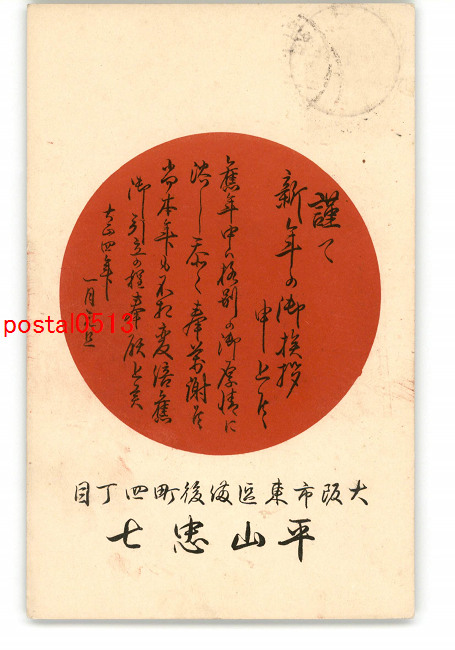 謹て
新年の御挨拶
申上候
舊年中は格別の御厚情に
浴し忝く奉萬謝候
尚本年も不相変倍舊
御引立の程奉願上候
大正四年
一月一旦
大阪市東區備後町四丁目
平山忠七
postal0513